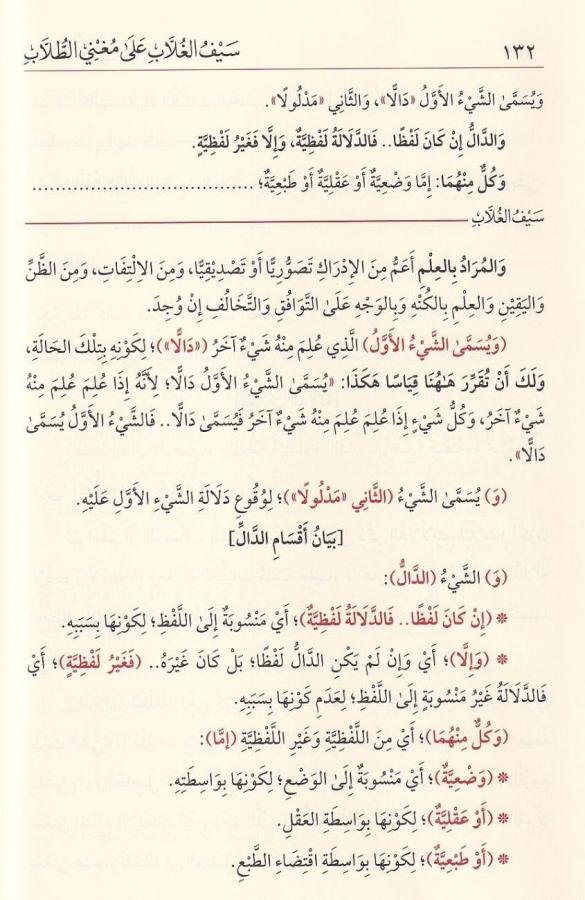 ١٣٢ سَيْفُ الغُلَّابِ عَلَىٰ مُغْنِي الطُّلَّابِ
وَيُسَمَّىٰ الشَّيْءُ الأَوَّلُ «دَالًّا»، وَالثَّانِي «مَدْلُولًا».
وَالدَّالُّ إِنْ كَانَ لَفْظًا.. فَالدَّلَالَةُ لَفْظِيَّةٌ، وَإِلَّا فَغَيْرُ لَفْظِيَّةٍ.
وَكُلٌّ مِنْهُمَا: إِمَّا وَضْعِيَّةٌ أَوْ عَقْلِيَّةٌ أَوْ طَبْعِيَّةٌ؛ ..................................
سَيْفُ الغُلَّابِ
وَالمُرَادُ بِالعِلْمِ أَعَمُّ مِنَ الإِدْرَاكِ تَصَوُّرِيًّا أَوْ تَصْدِيقِيًّا، وَمِنَ الِالْتِفَاتِ، وَمِنَ الظَّنِّ
وَاليَقِينِ وَالعِلْمِ بِالكُنْهِ وَبِالوَجْهِ عَلَىٰ التَّوَافُقِ وَالتَّخَالُفِ إِنْ وُجِدَ.
(وَيُسَمَّىٰ الشَّيْءُ الأَوَّلُ) الَّذِي عُلِمَ مِنْهُ شَيْءٌ آخَرُ («دَالًّا»)؛ لِكَوْنِهِ بِتِلْكَ الحَالَةِ،
وَلَكَ أَنْ تُقَرِّرَ هَاهُنَا قِيَاسًا هَكَذَا: «يُسَمَّىٰ الشَّيْءُ الأَوَّلُ دَالًّا؛ لِأَنَّهُ إِذَا عُلِمَ عُلِمَ مِنْهُ
شَيْءٌ آخَرُ، وَكُلُّ شَيْءٍ إِذَا عُلِمَ عُلِمَ مِنْهُ شَيْءٌ آخَرُ فَيُسَمَّىٰ دَالًّا.. فَالشَّيْءُ الأَوَّلُ يُسَمَّىٰ
دَالًّا».
(وَ) يُسَمَّىٰ الشَّيْءُ (الثَّانِي «مَدْلُولًا»)؛ لِوُقُوعِ دَلَالَةِ الشَّيْءِ الأَوَّلِ عَلَيْهِ.
[بَيَانُ أَقْسَامِ الدَّالِّ]
(وَ) الشَّيْءُ (الدَّالُّ):
* (إِنْ كَانَ لَفْظًا.. فَالدَّلَالَةُ لَفْظِيَّةٌ)؛ أَيْ مَنْسُوبَةٌ إِلَىٰ اللَّفْظِ؛ لِكَوْنِهَا بِسَبَبِهِ.
* (وَإِلَّا)؛ أَيْ وَإِنْ لَمْ يَكُنِ الدَّالُّ لَفْظًا؛ بَلْ كَانَ غَيْرَهُ.. (فَغَيْرُ لَفْظِيَّةٍ)؛ أَيْ
فَالدَّلَالَةُ غَيْرُ مَنْسُوبَةٍ إِلَىٰ اللَّفْظِ؛ لِعَدَمِ كَوْنِهَا بِسَبَبِهِ.
(وَكُلٌّ مِنْهُمَا)؛ أَيْ مِنَ اللَّفْظِيَّةِ وَغَيْرِ اللَّفْظِيَّةِ (إِمَّا):
* (وَضْعِيَّةٌ)؛ أَيْ مَنْسُوبَةٌ إِلَىٰ الوَضْعِ؛ لِكَوْنِهَا بِوَاسِطَتِهِ.
* (أَوْ عَقْلِيَّةٌ)؛ لِكَوْنِهَا بِوَاسِطَةِ العَقْلِ.
* (أَوْ طَبْعِيَّةٌ)؛ لِكَوْنِهَا بِوَاسِطَةِ اقْتِضَاءِ الطَّبْعِ.